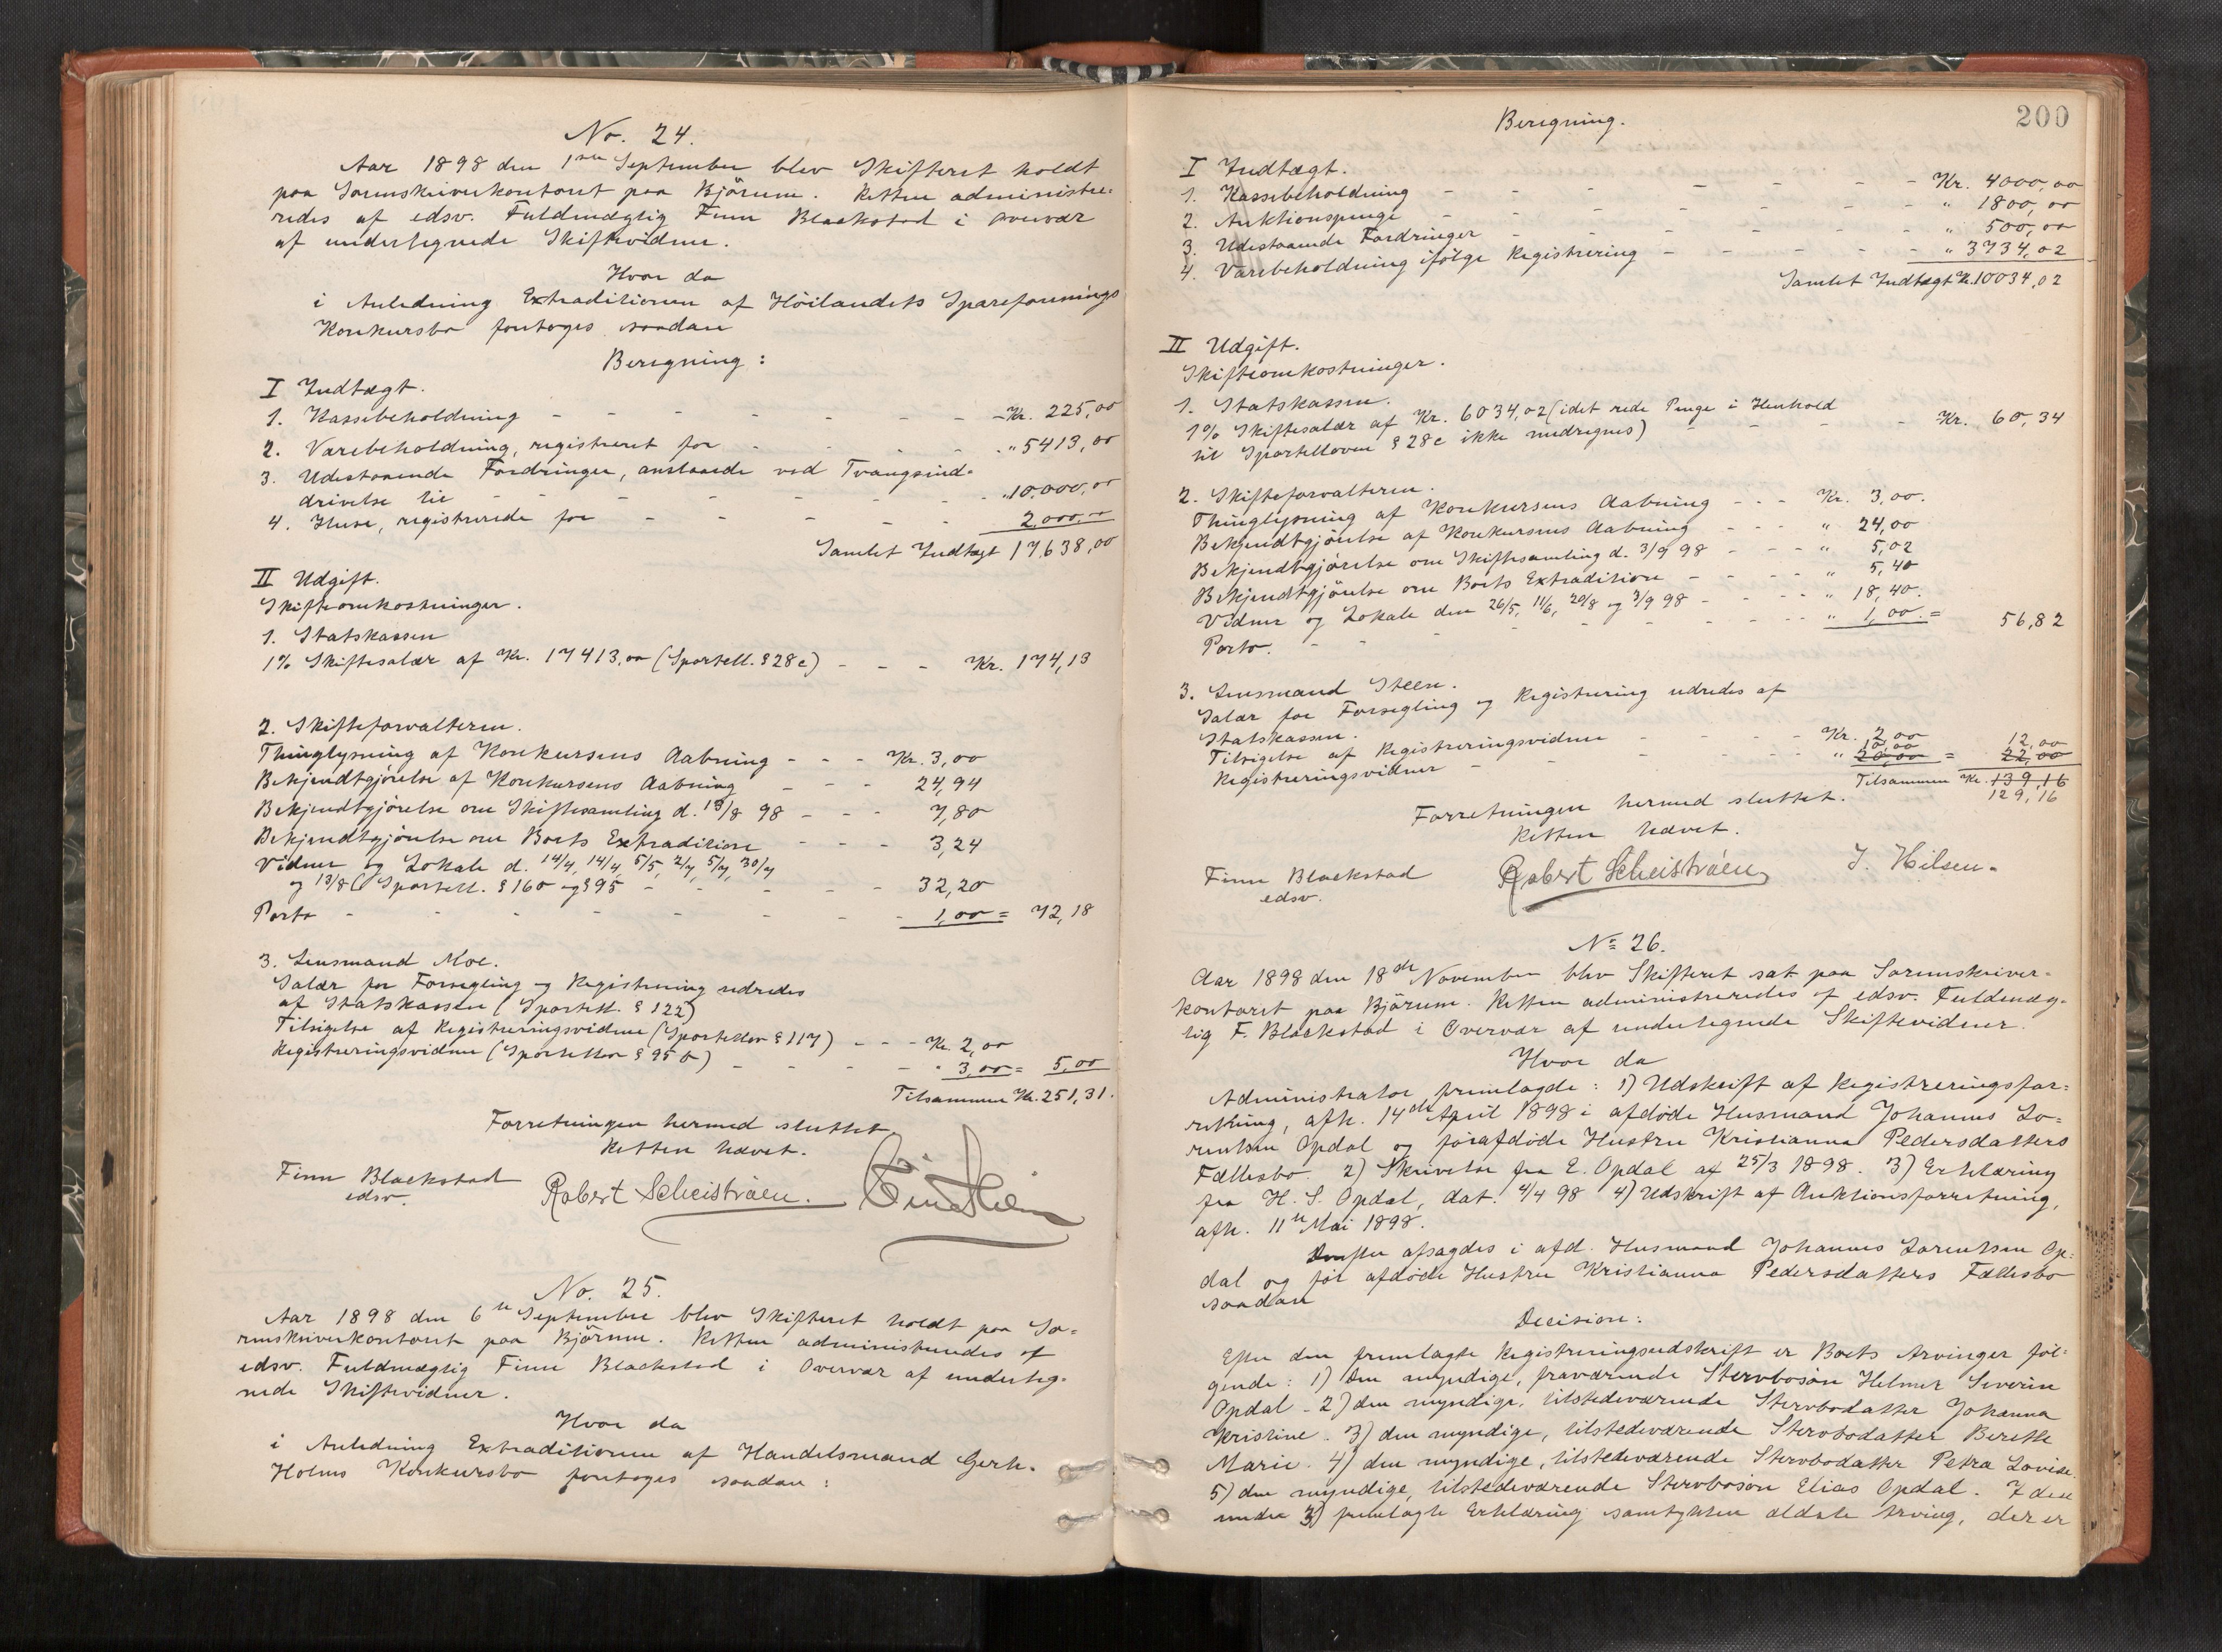 No. 24.
Aar 1898 den 1ste September blev Skifteret holdt
paa Sorenskriverkontoret paa Bjørum. Retten administre=
redes af edsv. Fuldmægtig Finn Blackstad i Overvær
af undertegnede Skiftevidner.
Hvor da
i Anledning Extraditionen af Höilandets Spareforenings
Konkursbo foretoges saadan
Beregning:
I Indtægt.
1. Kassebeholdning - - - - - - - Kr. 225,00
2. Varebeholdning, registreret for - - - - " 5413,00
3. Udestaaende Fordringer, anslaaede ved Tvangsind-
drivelse til - - - - - - " 10,000,00
4. Huse, registrerede for - - - - - 2,000,-
Samlet Indtægt 17,638,00
II Udgift.
Skifteomkostninger.
1. Statskassen
1% Skiftesalær af Kr. 17413,00 (Sportell. § 28c) - - - Kr. 174,13
2. Skifteforvalteren.
Thinglysning af Konkursens Aabning - - - Kr. 3,00
Bekjendtgjørelse af Konkursens Aabning - - - 24,94
Bekjendtgjørelse om Skiftesamling d. 13/8 98 - - - 7,80
Bekjendtgjørelse om Boets Extradition - - - 3,24
Vidner og Lokale d. 14/4, 14/4, 5/5, 2/7, 5/7, 30/7
og 13/8 (Sportell. § 160 og § 95 - - - - 32,20
Porto - - - - - - 1,00 = 72,18
3. Lensmand Moe.
Salær for Forsegling og Registrering udredes
af Statskassen (Sportell. § 122)
Tilsigelse af Registreringsvidner (Sportellov § 117) - - - Kr. 2,00
Registreringsvidner (Sportellov § 95 b) - - - - " 3,00 = 5,00
Tilsammen Kr. 251,31.
Forretningen hermed sluttet.
Retten hævet.
Finn Blackstad Robert Scheistrøen.
edsv.
No. 25.
Aar 1898 den 6te September blev Skifteret holdt paa So=
renskriverkontoret paa Bjørum. Retten administreredes af
edsv. Fuldmægtig Finn Blackstad i Overvær af underteg-
nede Skiftevidner.
Hvor da
i Anledning Extraditionen af Handelsmand Gerh.
Holms Konkursbo foretoges saadan:
200
Beregning.
I Indtægt.
1. Kassebeholdning - - - - - - Kr. 4000,00
2. Auktionspenge - - - - - - " 1800,00
3. Udestaaende Fordringer - - - - - " 500,00
4. Varebeholdning ifølge Registrering - - - - " 3734,02
Samlet Indtægt Kr. 10034,02
II Udgift.
Skifteomkostninger.
1. Statskassen.
1% Skiftesalær af Kr. 6034,02 (idet rede Penge i Henhold
til Sportelloven § 28c ikke medregnes) - - - - Kr. 60,34
2. Skifteforvalteren.
Thinglysning af Konkursens Aabning - - - Kr. 3,00.
Bekjendtgjörelse af Konkursens Aabning - - - " 24,00
Bekjendtgjörelse om Skiftesamling d. 3/9 98 - - - " 5,02
Bekjendtgjörelse om Boets Extradition - - - - " 5,40
Vidner og Lokale den 26/5, 11/6, 20/8 og 3/9 98 - - - - " 18,40.
Porto. - - - - - - - " 1,00 = 56,82
3. Lensmand Steen.
Salær for Forsegling og Registrering udredes af
Statskassen.
Tilsigelse af Registreringsvidner - - - - Kr. 2,00 12,00
Registreringsvidner - - - - - 10,00 " 20,00 = 22,00
Tilsammen Kr. 139,16
129,16
Forretningen hermed sluttet.
Retten hævet.
Finn Blackstad Robert Scheistrøen J. Hilsen.
edsv.
No 26.
Aar 1898 den 18de November blev Skifteret sat paa Sorenskriver-
kontoret paa Bjørum. Retten administreredes af edsv. Fuldmæg-
tig F. Blackstad i Overvær af undertegnede Skiftevidner.
Hvor da
Administrator fremlagde: 1) Udskrift af Registreringsfor=
retning, afh. 14de April 1898 i afdøde Husmand Johannes Lo=
rentsen Opdal og førafdøde Hustru Kristianna Pedersdatters
Fællesbo. 2) Skrivelse fra E. Opdal af 25/3 1898. 3) Erklæring
fra H. S. Opdal, dat. 4/4 98 4) Udskrift af Auktionsforretning,
afh. 11te Mai 1898.
Derefter afsagdes i afd. Husmand Johannes Lorentsen Op=
dal og før afdøde Hustru Kristianna Pedersdatters Fællesbo
saadan
Decision:
Efter den fremlagte Registreringsudskrift er Boets Arvinger føl=
gende: 1) Den myndige, fraværende Stervbosøn Helmer Severin
Opdal - 2) den myndige, tilstedeværende Stervbodatter Johanna
Kristine. 3) den myndige, tilstedeværende Stervbodatter Berethe
Marie. 4) den myndige, tilstedeværende Stervbodatter Petra Lovise.
5) den myndige, tilstedeværende Stervbosøn Elias Opdal. I den
under 3) fremlagte Erklæring samtykker ældste Arving, der er